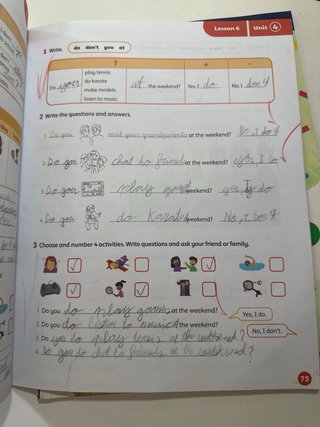 Lesson 6 Unit 4
1 Write. do don't you at
? + -
play tennis
do karate
make models
listen to music
Do you at the weekend? Yes, I do No, I don't
2 Write the questions and answers.
1 Do you visit your grandparents at the weekend? No, I don't
2 Do you chat to friends at the weekend? Yes, I do
3 Do you play weekend? yes, I do
4 Do you do weekend? No, I don't
3 Choose and number 4 activities. Write questions and ask your friend or family.
1 Do you do play games at the weekend?
Yes, I do.
2 Do you do listen to music at the weekend?
No, I don't.
3 Do you do play tennis at the weekend?
4 you do chat to friends at the weekend?
75